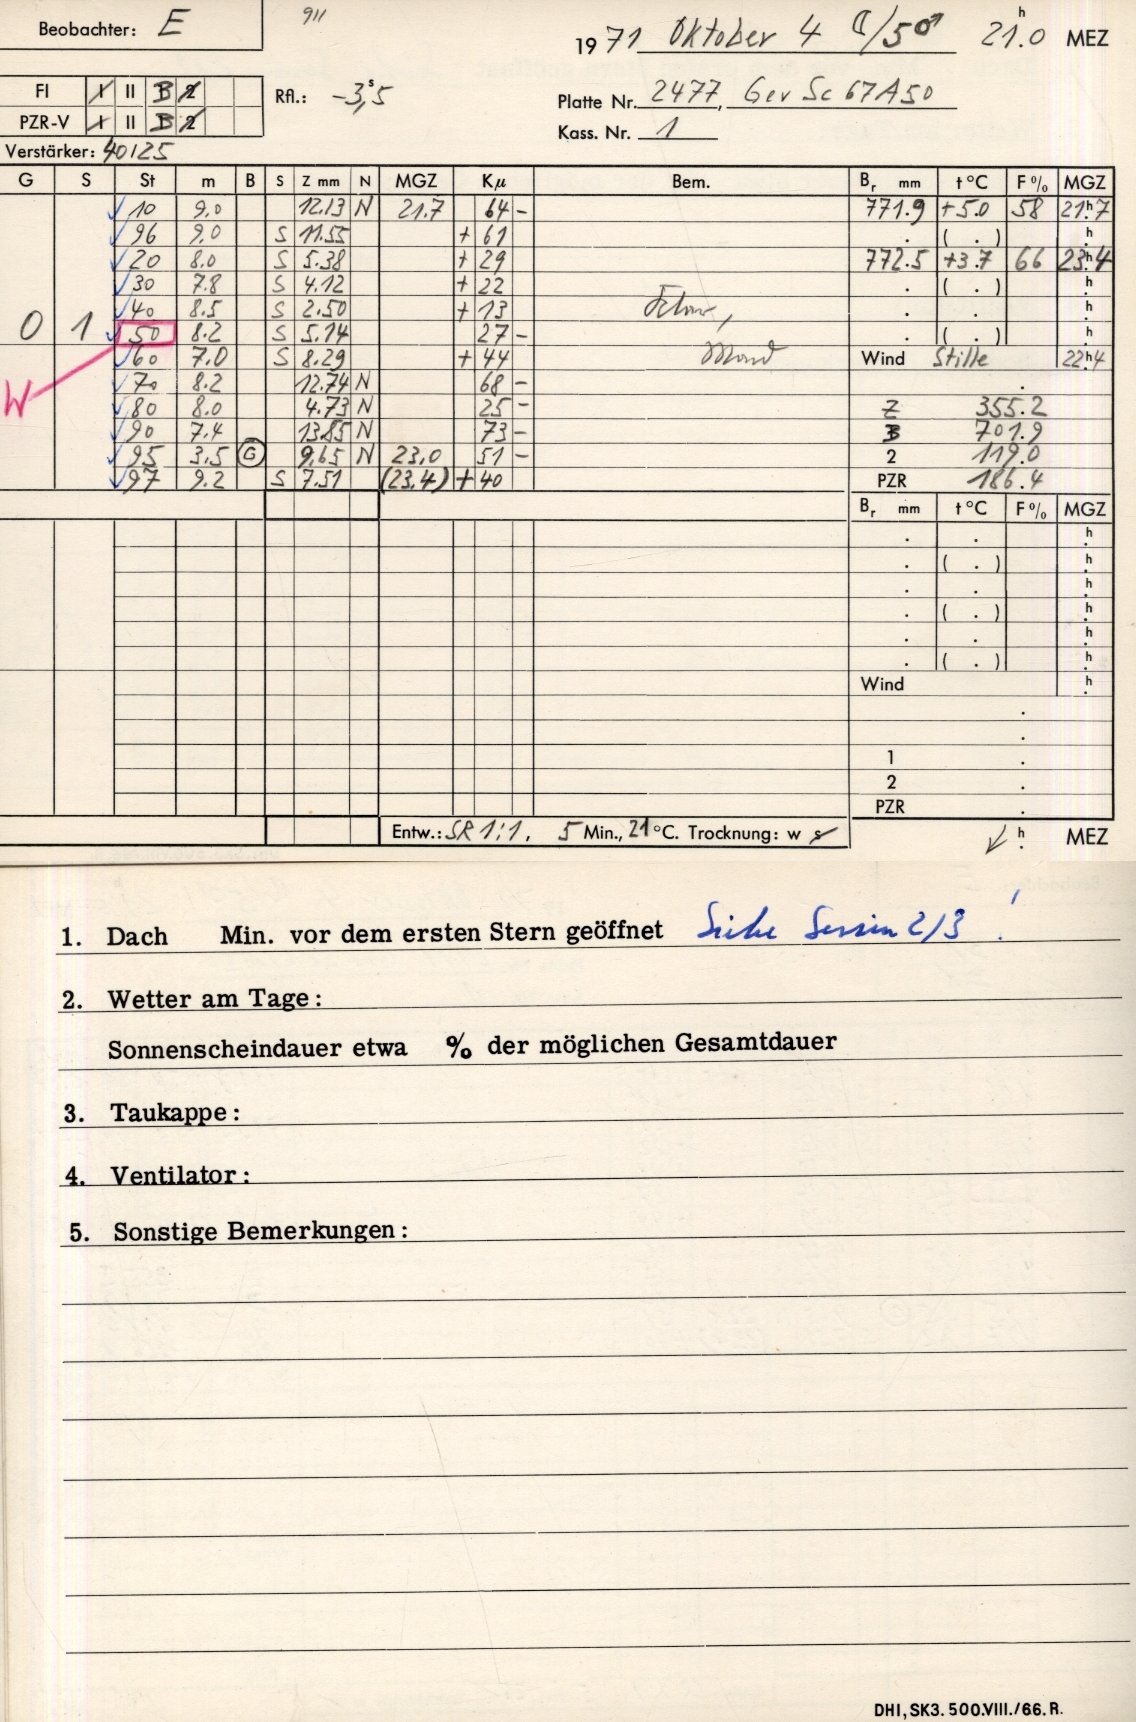 Beobachter: E 911 1971 Oktober 4 ☾/5♂ 21.0 h MEZ
FI I II B 2 Rfl.: -3,5 s Platte Nr. 2477, Gev Sc 67A50
PZR-V I II B 2 Kass. Nr. 1
Verstärker: 40125
G S St m B S Z mm N MGZ Kμ Bem. Br mm t°C F% MGZ
10 9.0 12.13 N 21.7 64 - 771.9 +5.0 58 21h7
96 9.0 S 11.55 + 61 . ( . ) h
20 8.0 S 5.38 + 29 772.5 +3.7 66 23h4
30 7.8 S 4.12 + 22 . ( . ) h
40 8.5 S 2.50 + 13 . . h
0 1 50 8.2 S 5.14 27 - . ( . ) h
60 7.0 S 8.29 + 44 Mond Wind Stille 22h4
W 70 8.2 12.74 N 68 - .
80 8.0 4.73 N 25 - Z 355.2
90 7.4 13.85 N 73 - B 701.9
95 3.5 G 9.65 N 23.0 51 - 2 119.0
97 9.2 S 7.51 (23.4) + 40 PZR 186.4
Br mm t°C F% MGZ
. . h
. ( . ) h
. . h
. ( . ) h
. . h
. ( . ) h
Wind h
.
.
1 .
2 .
PZR .
Entw.: SR 1:1, 5 Min., 21 °C. Trocknung: w s h MEZ
1. Dach Min. vor dem ersten Stern geöffnet Siehe Session 2/3 !
2. Wetter am Tage:
Sonnenscheindauer etwa % der möglichen Gesamtdauer
3. Taukappe:
4. Ventilator:
5. Sonstige Bemerkungen:
DHI, SK3. 500.VIII./66. R.